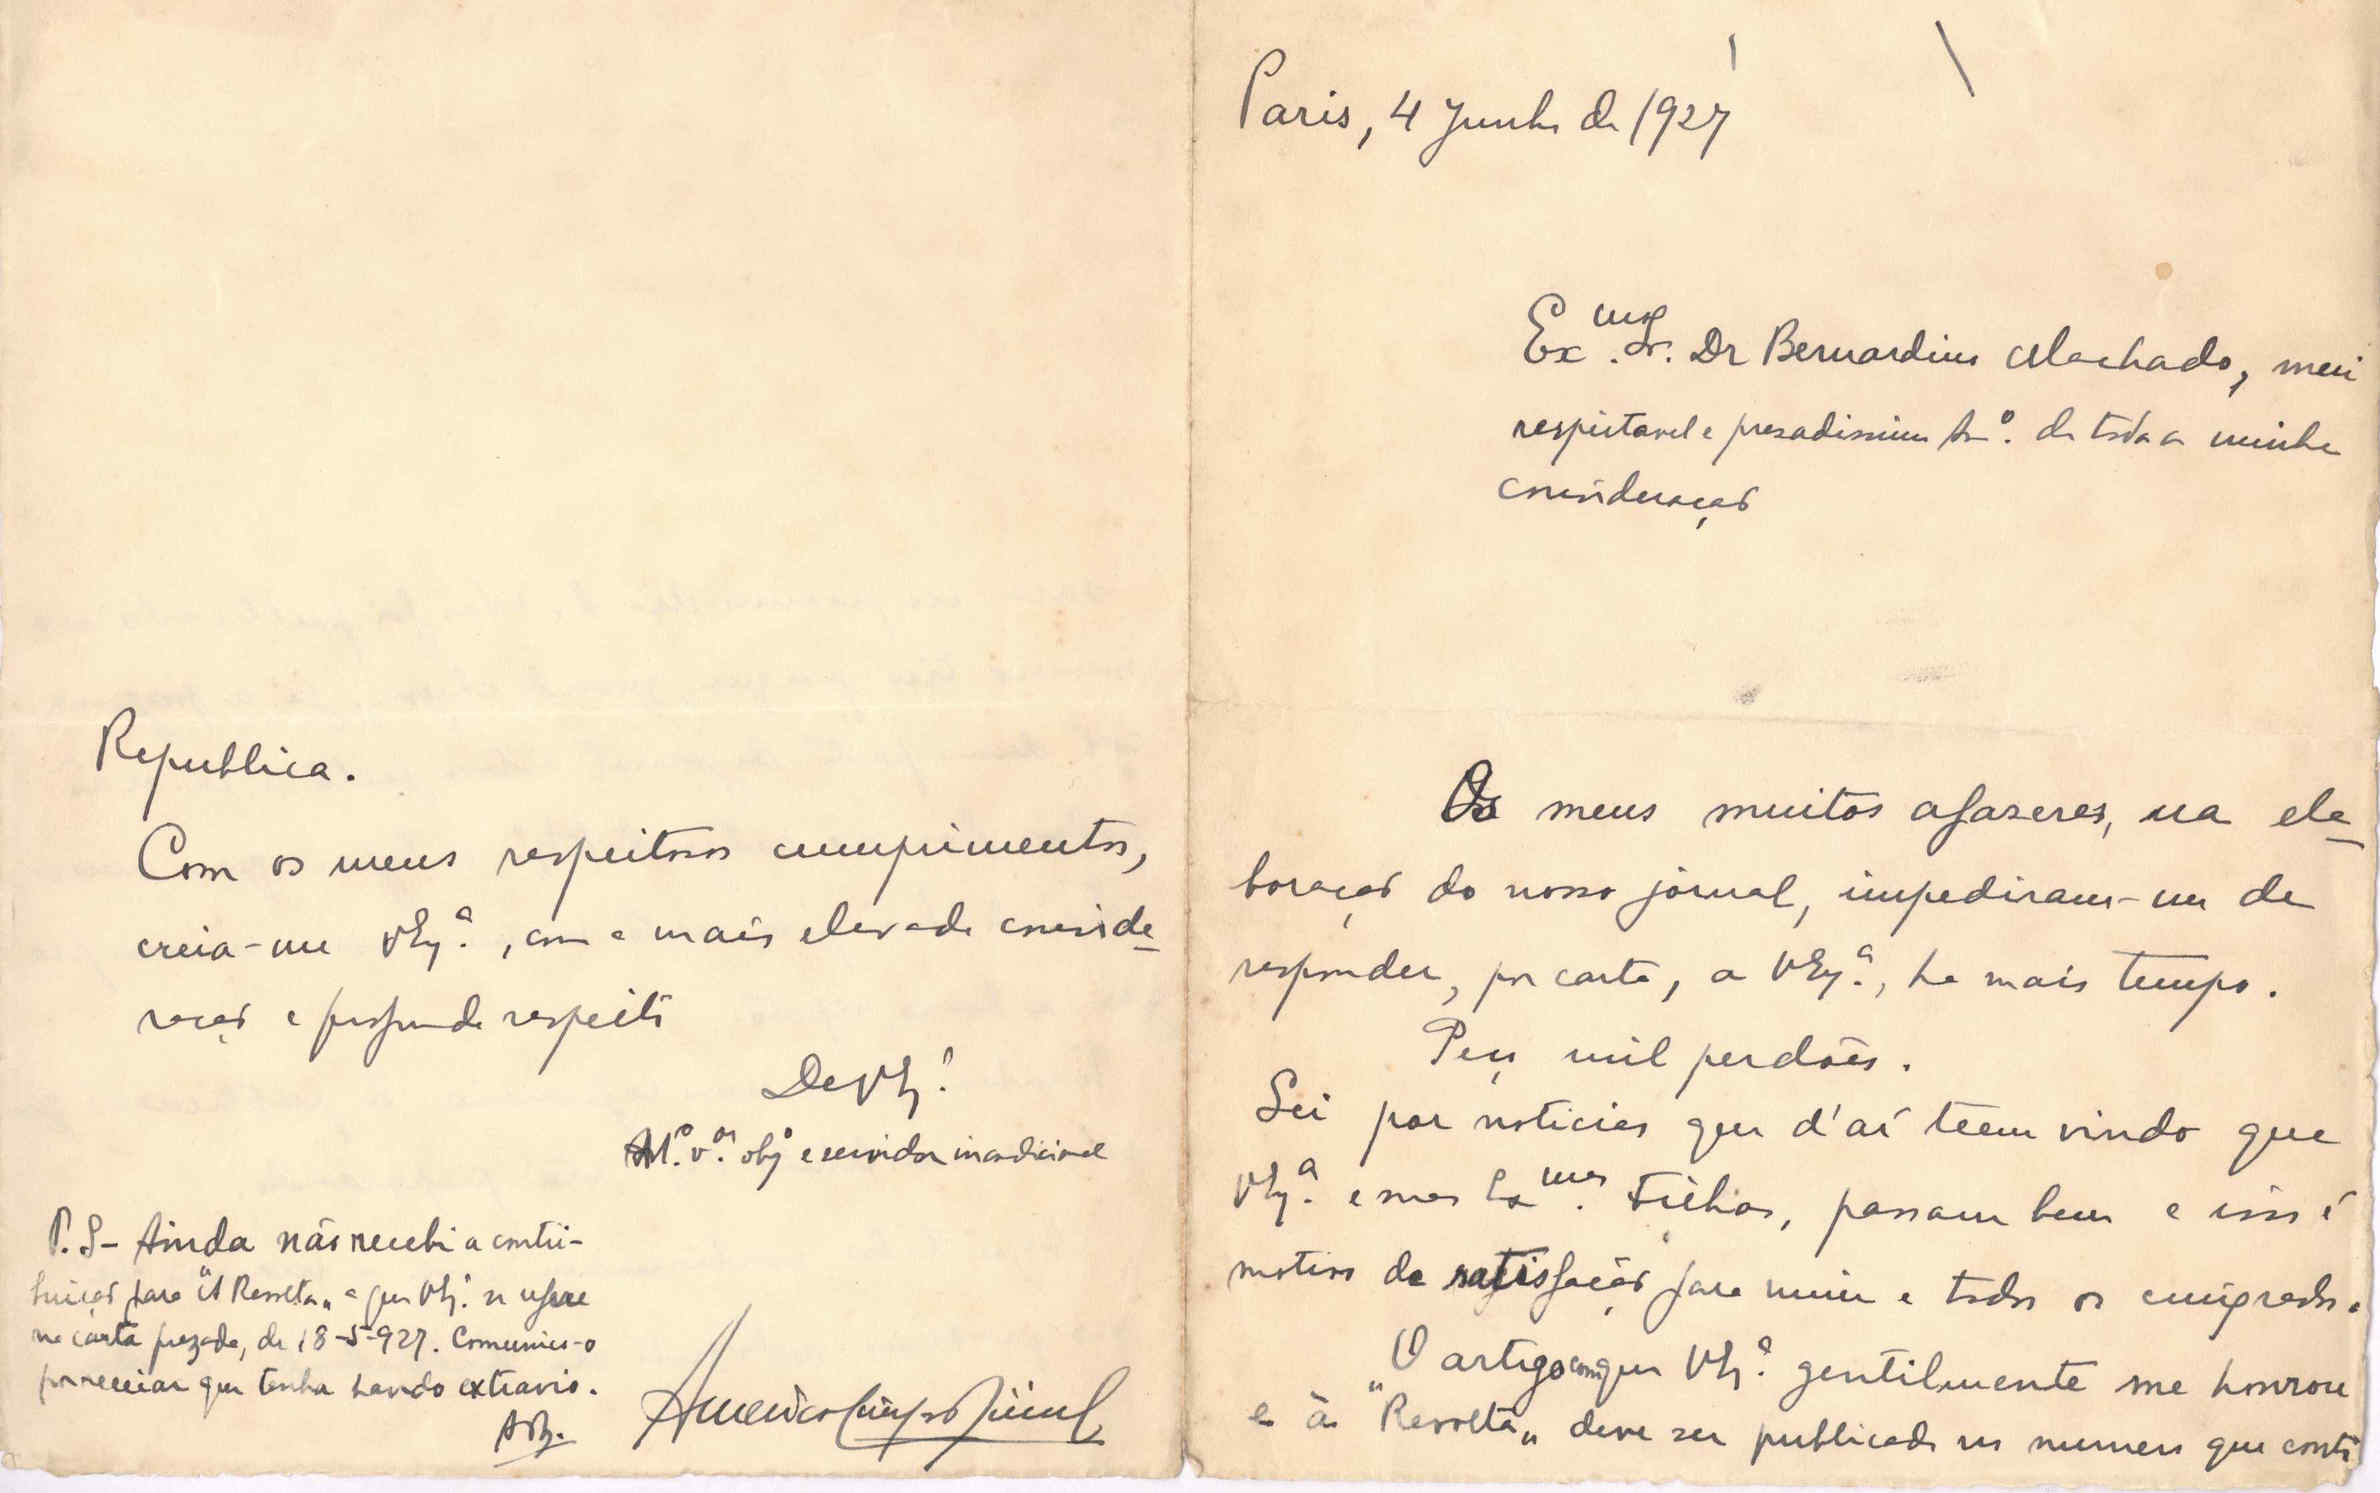 Paris, 4 Junho de 1927
Ex.mo Sr. Dr Bernardino Machado, meu
respeitavel e presadissimo Am.º de toda a minha
consideração
Os meus muitos afazeres, na ela-
boração do nosso jornal, impediram-me de
responder, por carta, a VEx.ª, ha mais tempo.
Peço mil perdões.
Sei por noticias que d'aí teem vindo que
VEx.ª e suas Ex.mas Filhas, passam bem e isso é
motivo de satisfação para mim e todos os emigrados.
O artigo com que VEx.ª gentilmente me honrou
e à "Revolta" deve ser publicado no numero que conti
Republica.
Com os meus respeitosos cumprimentos,
creia-me VEx.ª, com a mais elevada conside-
ração e profundo respeito
De VEx.ª
At.º v.or obg.º e servidor incondicional
P.S- Ainda não recebi a contri-
buição para "A Revolta" a que VEx.ª se refere
na carta prezada, de 18-5-927. Comunico-o
por recear que tenha havido extravio.